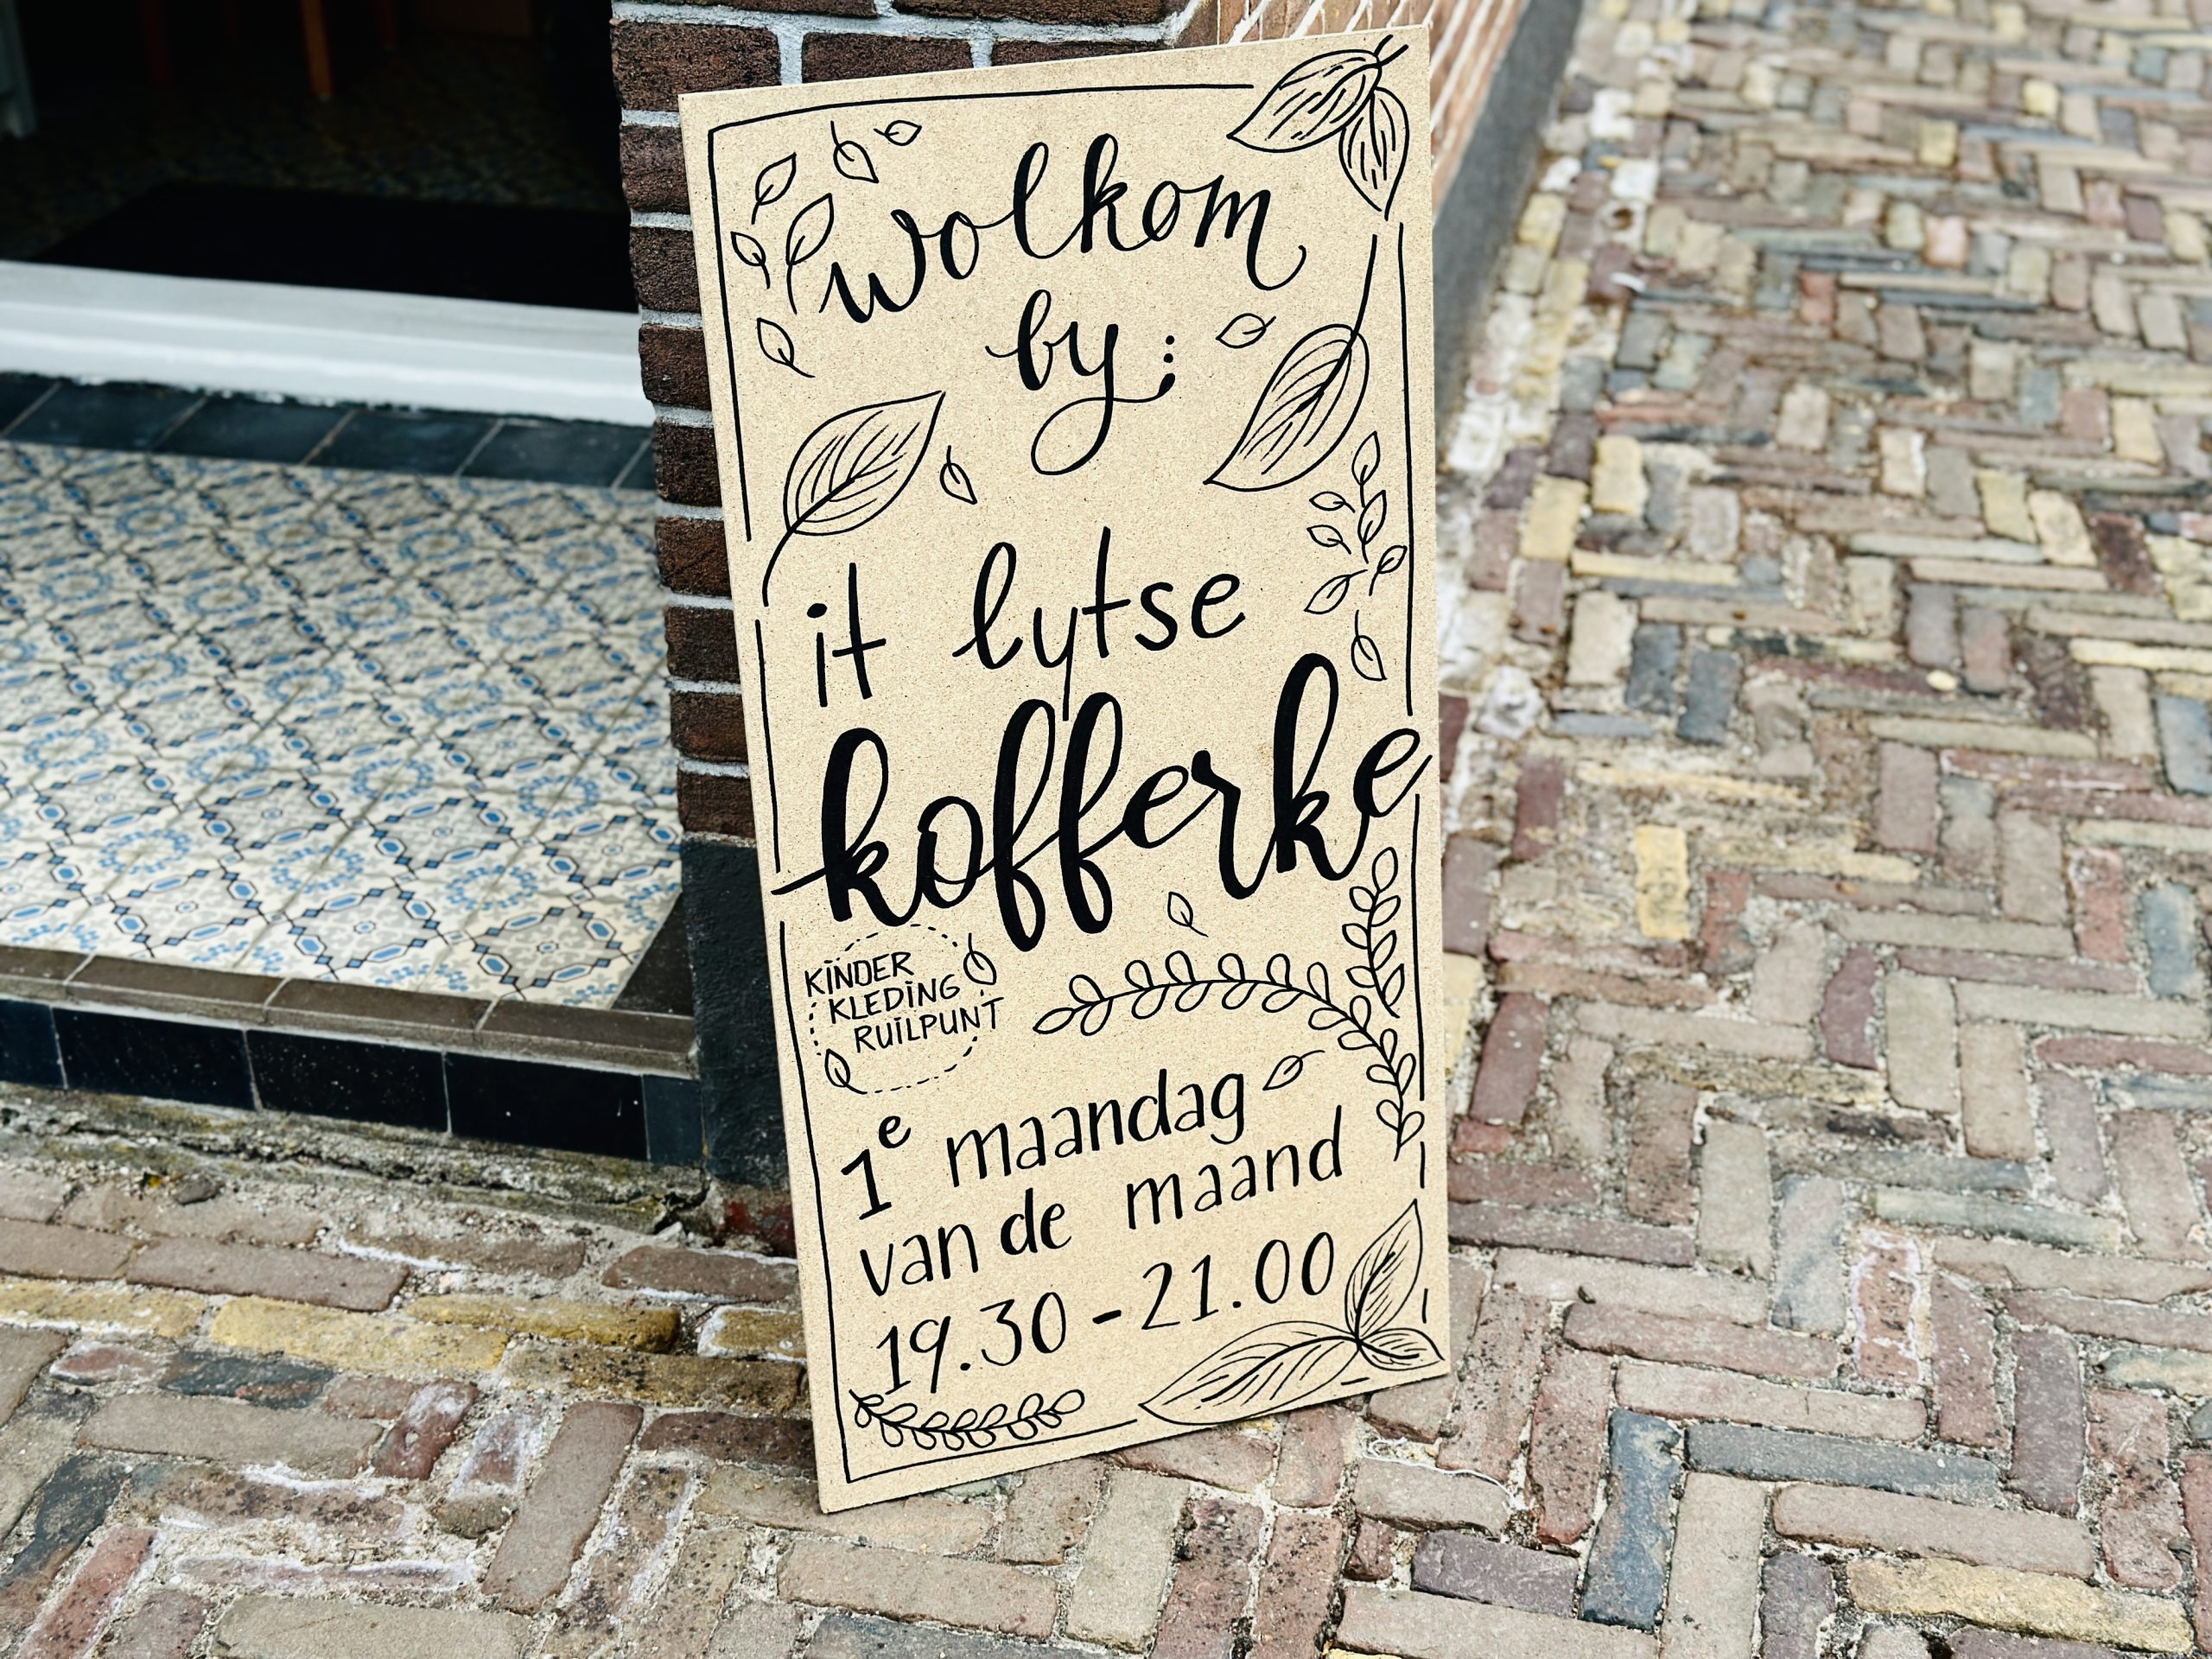 wolkom
by:
it lytse
kofferke
KINDER
KLEDING
RUILPUNT
1e maandag
van de maand
19.30 - 21.00